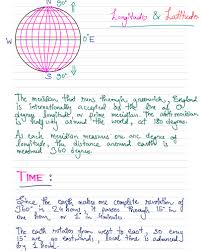 Longitudes & Latitudes
N 90°
W
0°E
S 90°
The meridian that runs through greenwich, England
is internationally accepted as the line of 0
degree longitude, or prime meridian. The
halfway around the world, at 180 degrees.
As each meridian measures one degree of
longitude, the distance around earth is
measured 360 degree.
TIME :
Since the earth makes one complete revolution of
360° in 24 hours, it passes through 15° in
one hour, or in minutes.
The earth rotates from west to east, so every
15° we go eastwards, local time is advanced
by 1 hour.